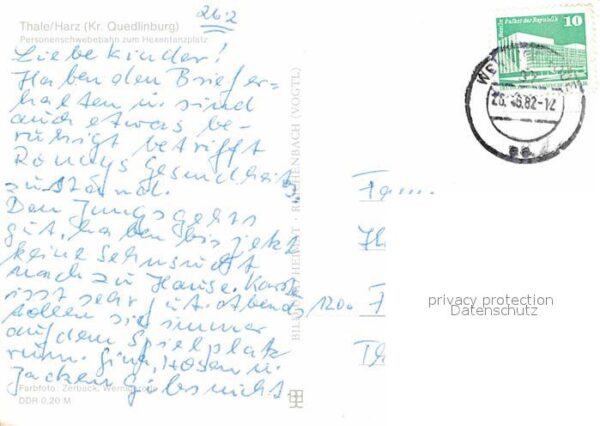 26.2
Thale/Harz (Kr. Quedlinburg)
Personenschwebebahn zum Hexentanzplatz
Liebe Kinder!
Haben den Brief er=
halten u. sind
auch etwas be-
ruhigt betrifft
Ronnys Gesundheits
zustand.
Den Jungs gehts
gut, haben bis jetzt
keine Sehnsucht
nach zu Hause.
isst sehr gut. Abends
tollen sie immer
auf dem Spielplatz
rum. Hosen u.
Jacken gibts nicht
Farbfoto: Zerback, Wernigerode
DDR 0,20 M
BILD UND HEIMAT · REICHENBACH (VOGTL)
Berlin Palast der Republik
10
DDR
82-12
Fam.
privacy protection
Datenschutz